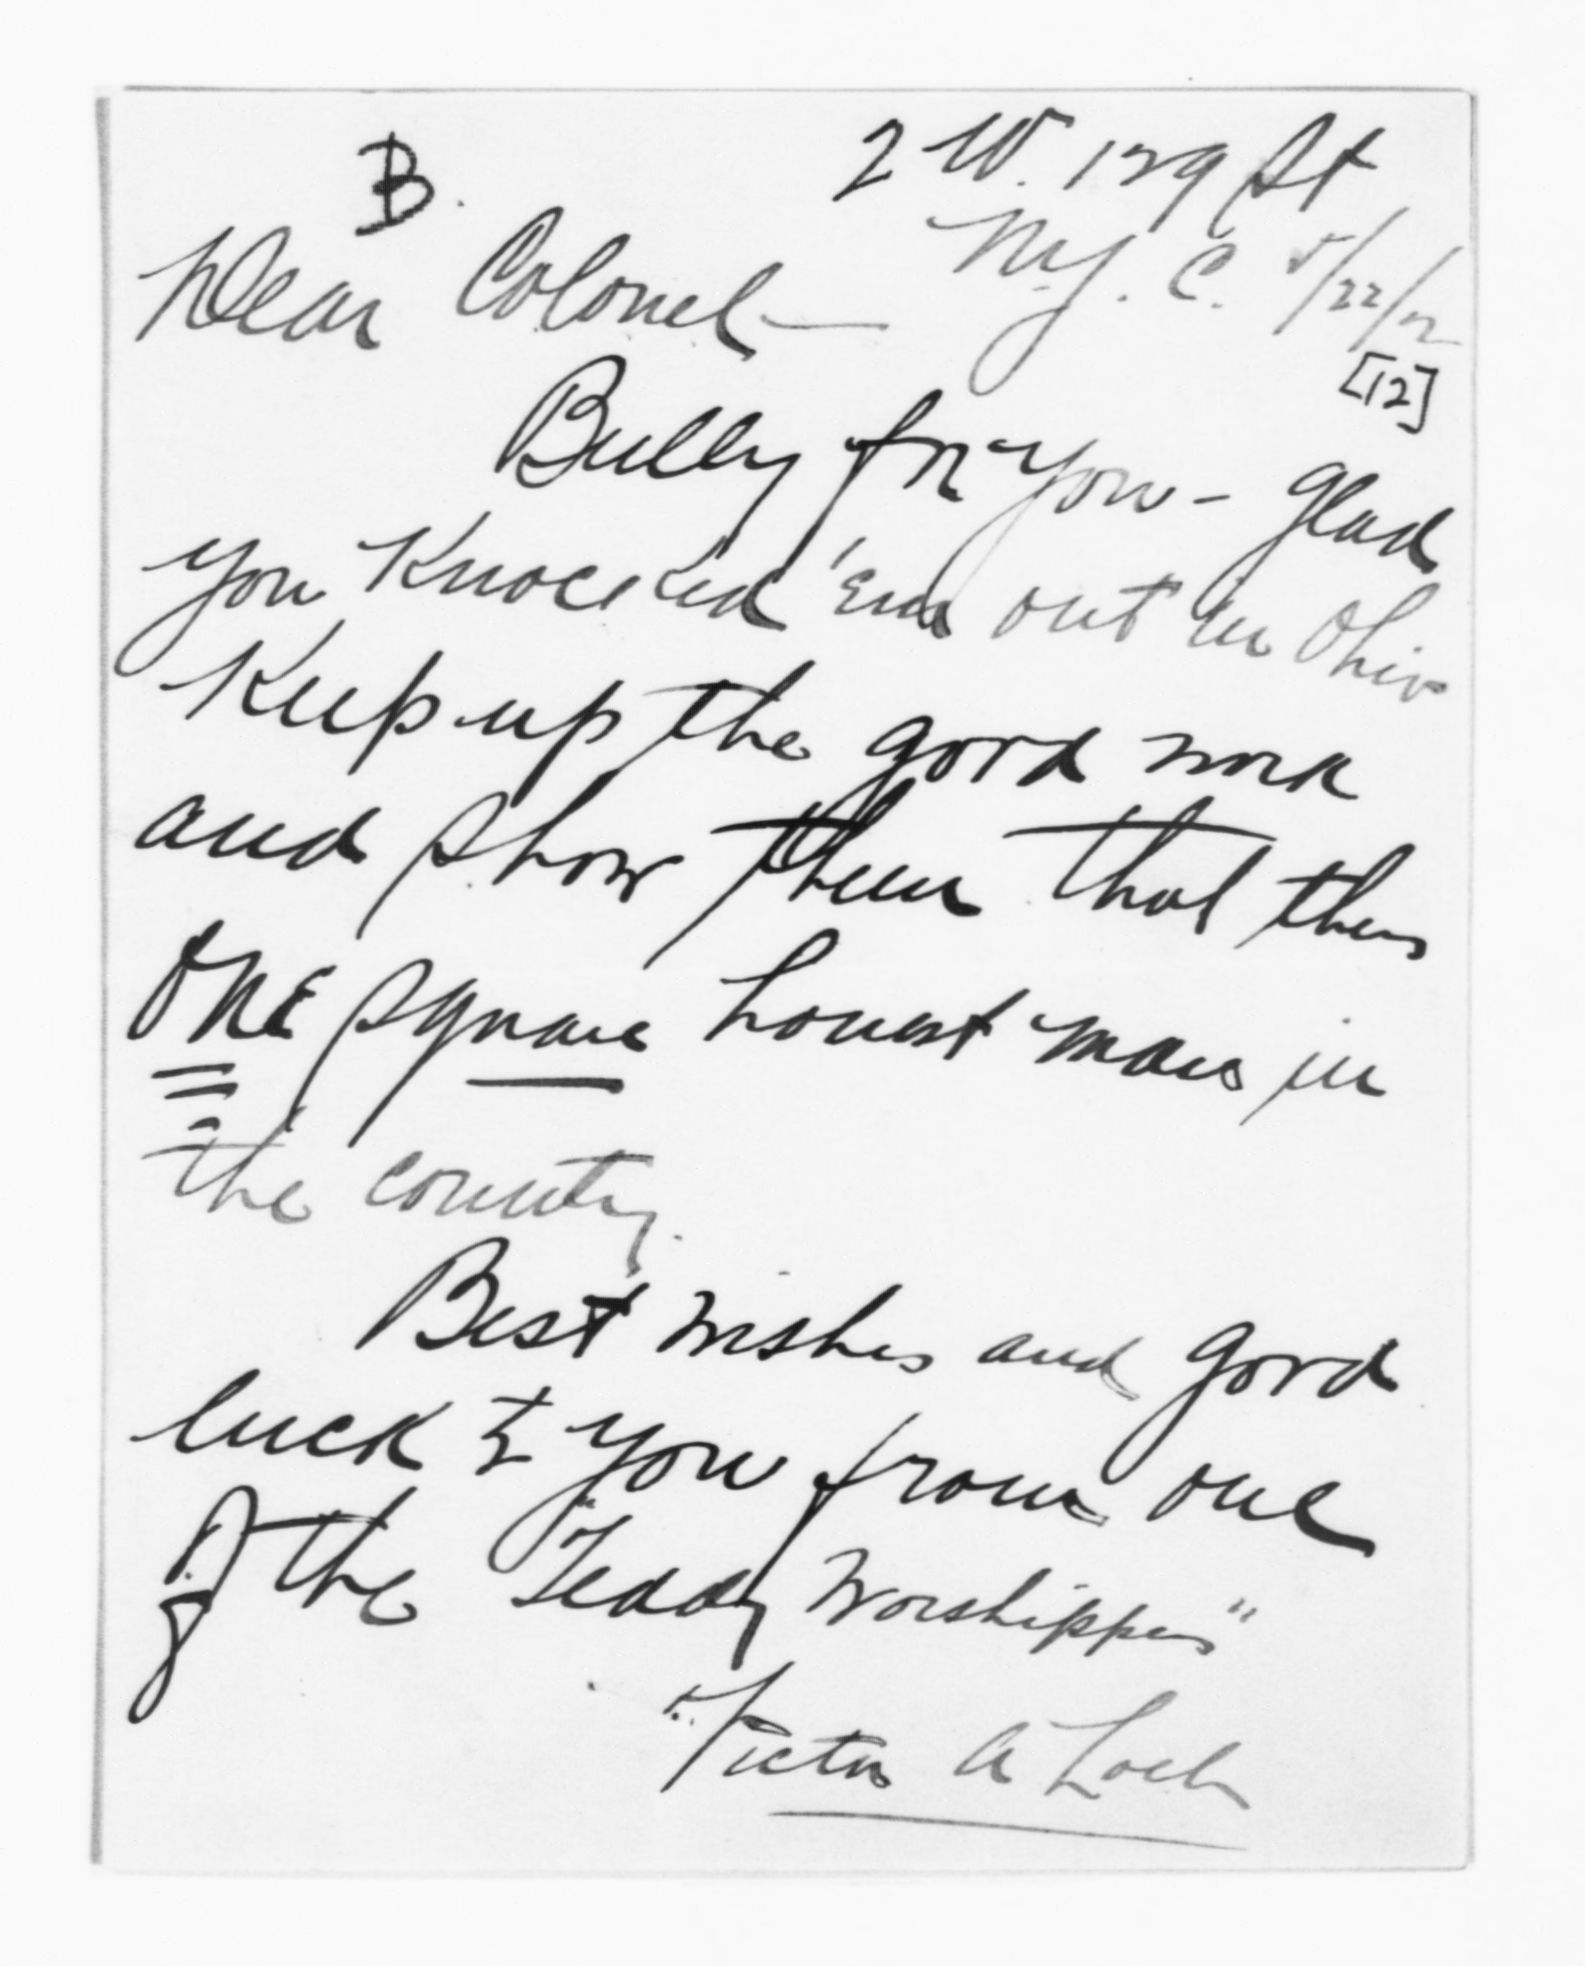 B.
2 W. 129 St
N.Y. C. 5/22/12
[12]
Dear Colonel—
Bully for you – glad
you knocked 'em out in Ohio
Keep up the good work
and show them that theres
ONE square honest man in
the country.
Best wishes and good
luck to you from one
of the "Teddy Worshippers"
Victor A Loeb